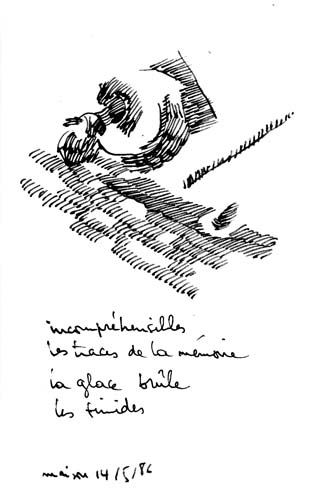 incompréhensibles
les traces de la mémoire
la glace brûle
les timides
maison 14/5/86